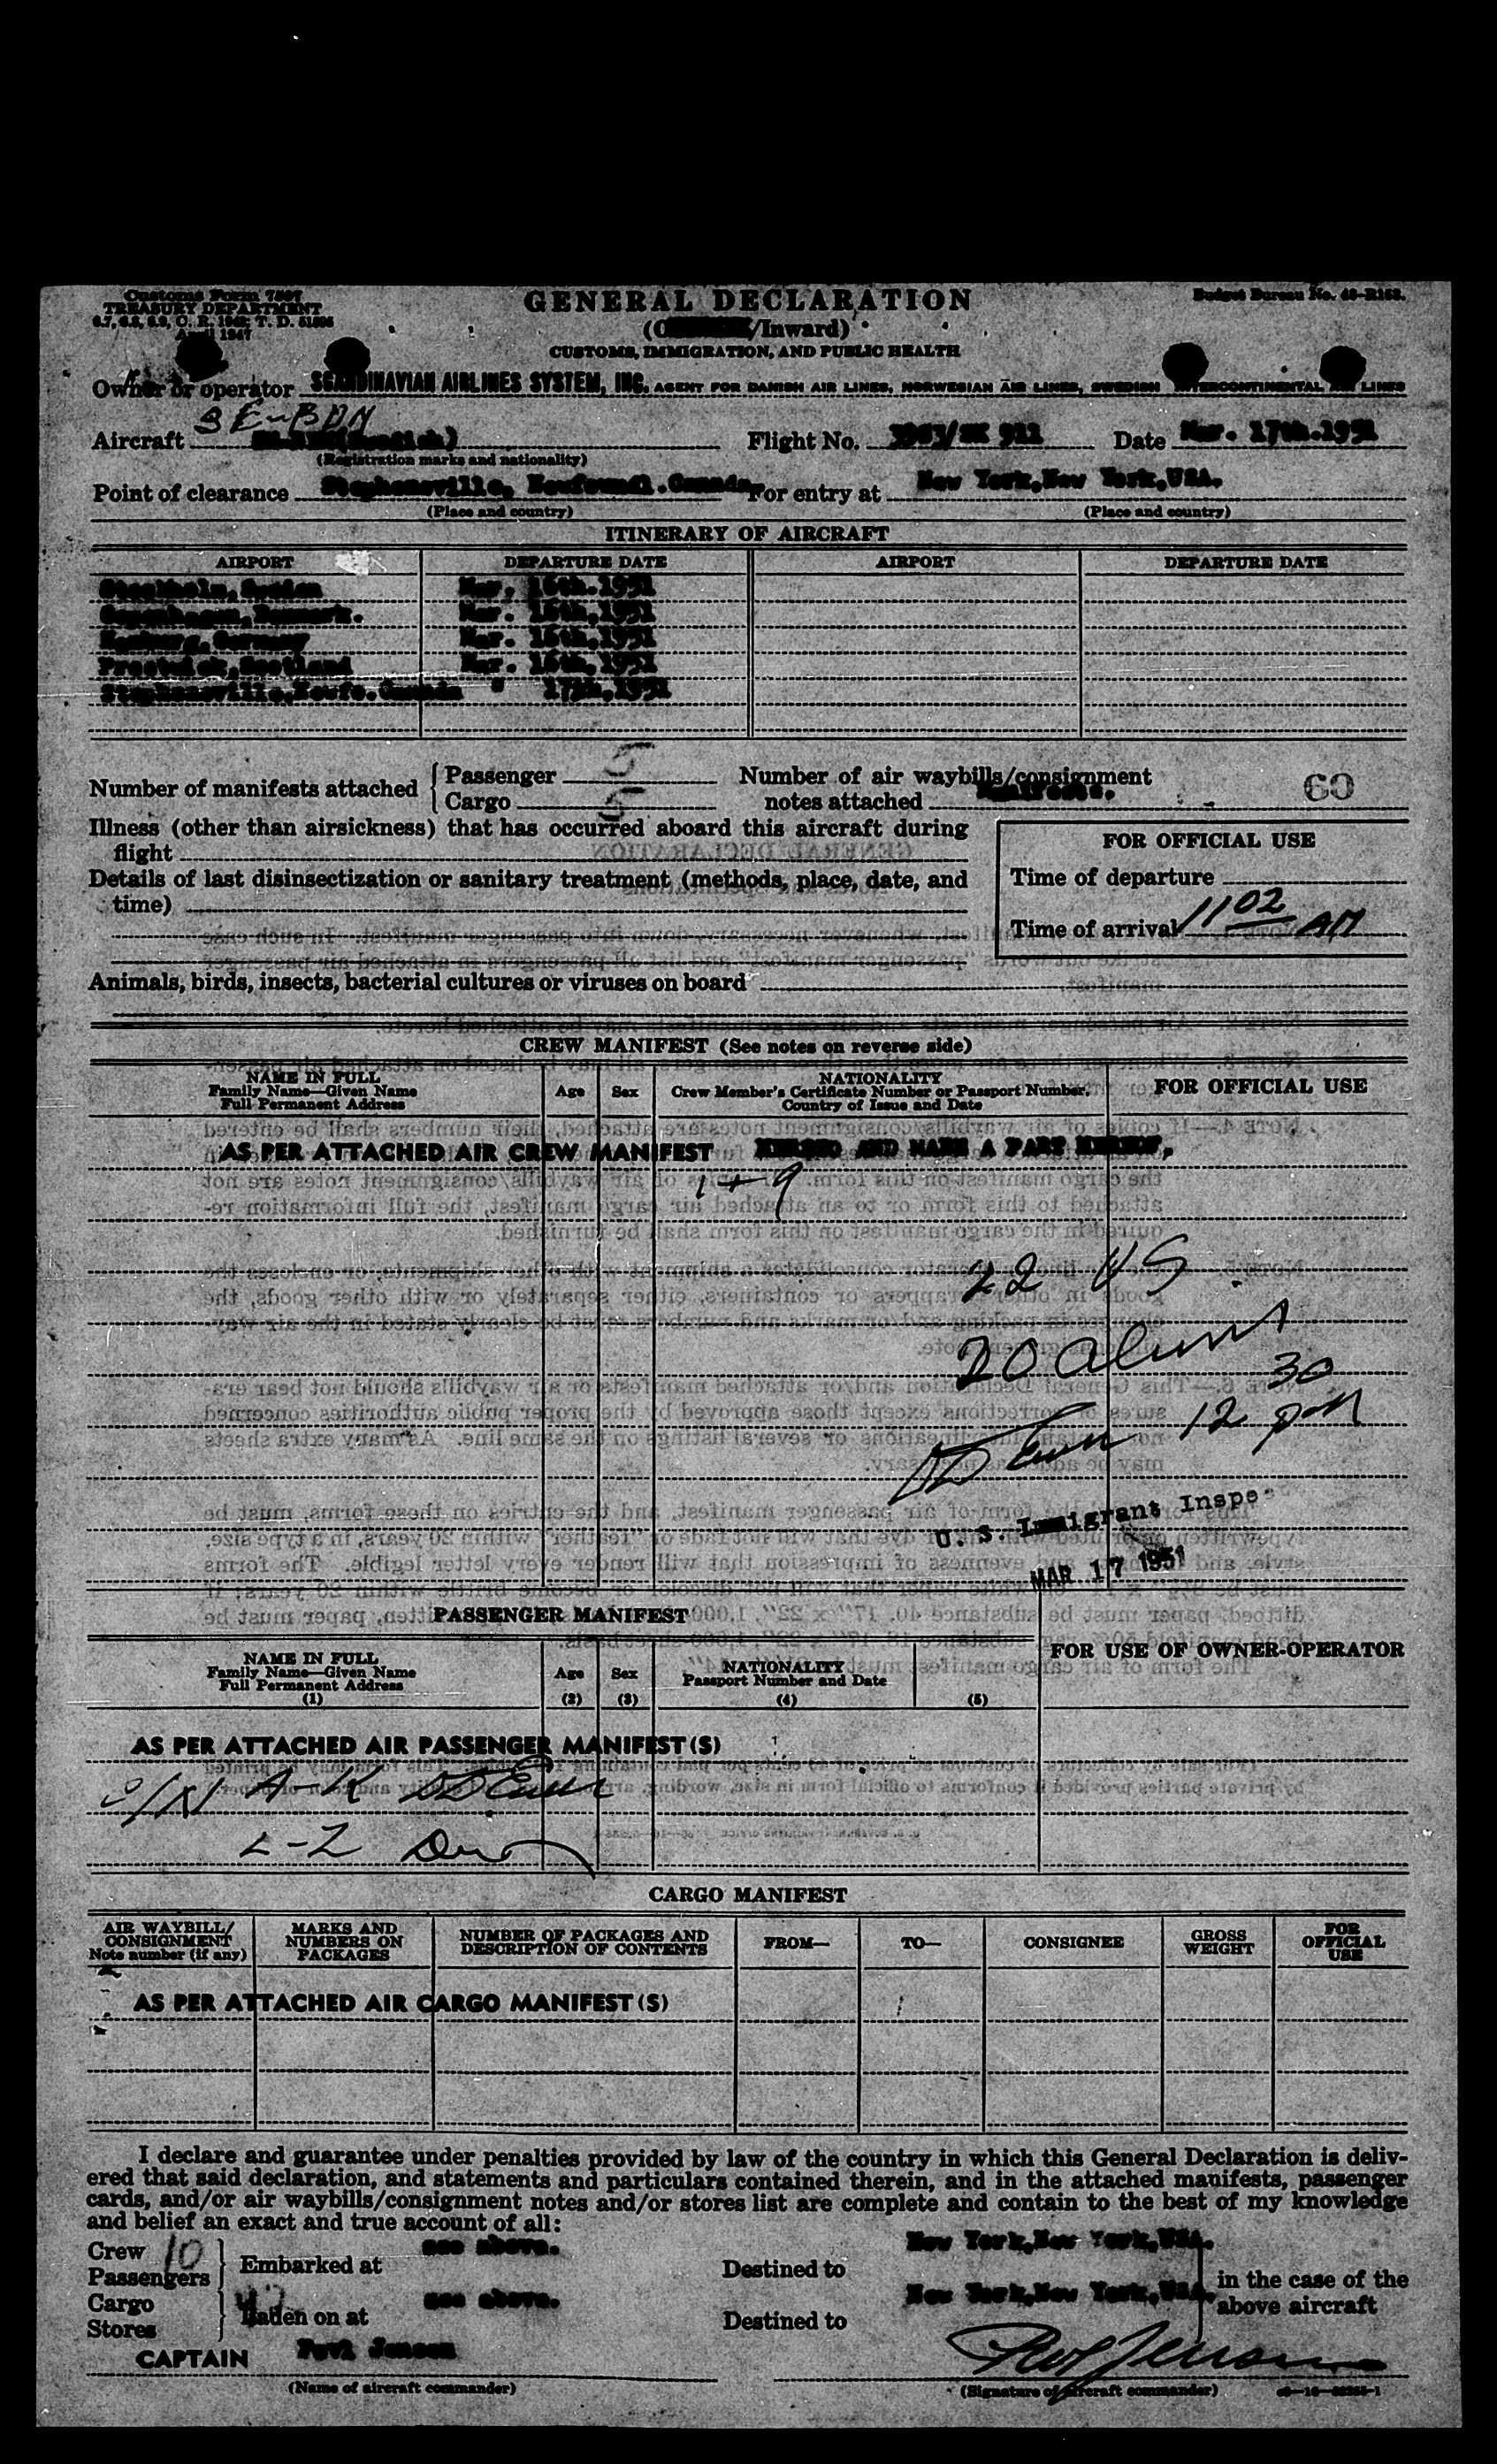 Customs Form 7507
TREASURY DEPARTMENT
April 1947
GENERAL DECLARATION
/Inward)
CUSTOMS, IMMIGRATION, AND PUBLIC HEALTH
Budget Bureau No.
Owner or operator SCANDINAVIAN AIRLINES SYSTEM, INC. AGENT FOR DANISH AIR LINES, NORWEGIAN AIR LINES, SWEDISH INTERCONTINENTAL AIR LINES
SE-BDN
Aircraft
Flight No. Date Mar. 17th.1951
(Registration marks and nationality)
Point of clearance Stephensville, Newfoundl.Canada For entry at New York,New York,USA.
(Place and country) (Place and country)
ITINERARY OF AIRCRAFT
AIRPORT DEPARTURE DATE AIRPORT DEPARTURE DATE
Stockholm,Sweden Mar. 16th.1951
Copenhagen,Denmark. Mar. 16th,1951
Hamburg,Germany Mar. 16th,1951
Prestwick,Scotland Mar. 16th,1951
Stephensville,Newfo.Canada " 17th,1951
Number of manifests attached Passenger 5 Number of air waybills/consignment
Cargo 5 notes attached 60
Illness (other than airsickness) that has occurred aboard this aircraft during
flight
Details of last disinsectization or sanitary treatment (methods, place, date, and
time)
FOR OFFICIAL USE
Time of departure
Time of arrival 11 02 AM
Animals, birds, insects, bacterial cultures or viruses on board
CREW MANIFEST (See notes on reverse side)
NAME IN FULL
Family Name—Given Name
Full Permanent Address
Age Sex
NATIONALITY
Crew Member's Certificate Number or Passport Number,
Country of Issue and Date
FOR OFFICIAL USE
AS PER ATTACHED AIR CREW MANIFEST AND MADE A PART HEREOF,
1+9
22 US
20 aliens
12 30 pm
U. S. Immigrant Inspe
MAR 17 1951
PASSENGER MANIFEST
NAME IN FULL
Family Name—Given Name
Full Permanent Address
(1)
Age
(2)
Sex
(3)
NATIONALITY
Passport Number and Date
(4) (5)
FOR USE OF OWNER-OPERATOR
AS PER ATTACHED AIR PASSENGER MANIFEST(S)
A-K
L-Z
CARGO MANIFEST
AIR WAYBILL/
CONSIGNMENT
Note number (if any)
MARKS AND
NUMBERS ON
PACKAGES
NUMBER OF PACKAGES AND
DESCRIPTION OF CONTENTS
FROM— TO— CONSIGNEE
GROSS
WEIGHT
FOR
OFFICIAL
USE
AS PER ATTACHED AIR CARGO MANIFEST(S)
I declare and guarantee under penalties provided by law of the country in which this General Declaration is deliv-
ered that said declaration, and statements and particulars contained therein, and in the attached manifests, passenger
cards, and/or air waybills/consignment notes and/or stores list are complete and contain to the best of my knowledge
and belief an exact and true account of all:
Crew 10
Passengers
Embarked at see above. Destined to New York,New York,USA.
Cargo
Stores
Laden on at see above. Destined to New York,New York,USA.
in the case of the
above aircraft
CAPTAIN Povl Jensen
(Name of aircraft commander) (Signature of aircraft commander)